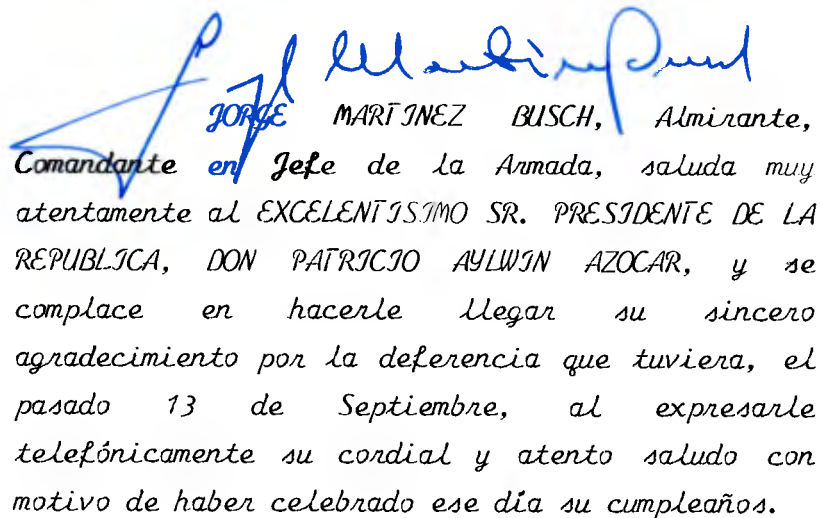 JORGE MARTINEZ BUSCH, Almirante,
Comandante en Jefe de la Armada, saluda muy
atentamente al EXCELENTISIMO SR. PRESIDENTE DE LA
REPUBLICA, DON PATRICIO AYLWIN AZOCAR, y se
complace en hacerle llegar su sincero
agradecimiento por la deferencia que tuviera, el
pasado 13 de Septiembre, al expresarle
telefónicamente su cordial y atento saludo con
motivo de haber celebrado ese día su cumpleaños.